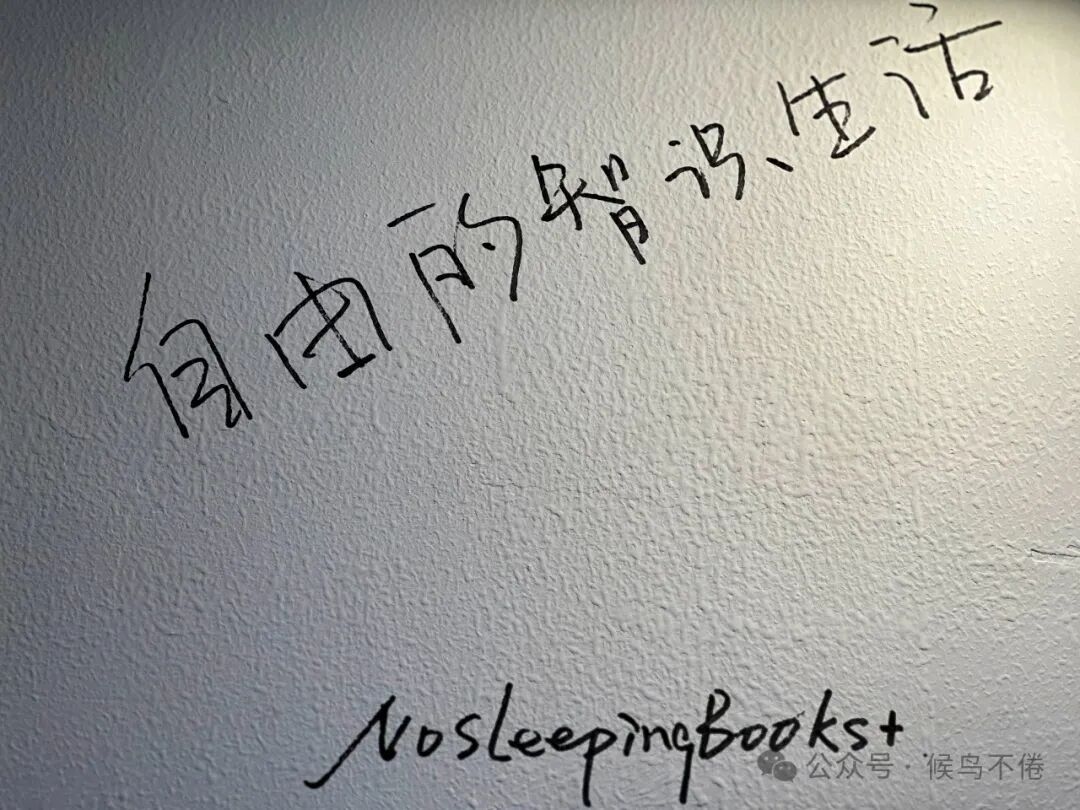 自由的智识生活
NosleepingBooks+
公众号·候鸟不倦